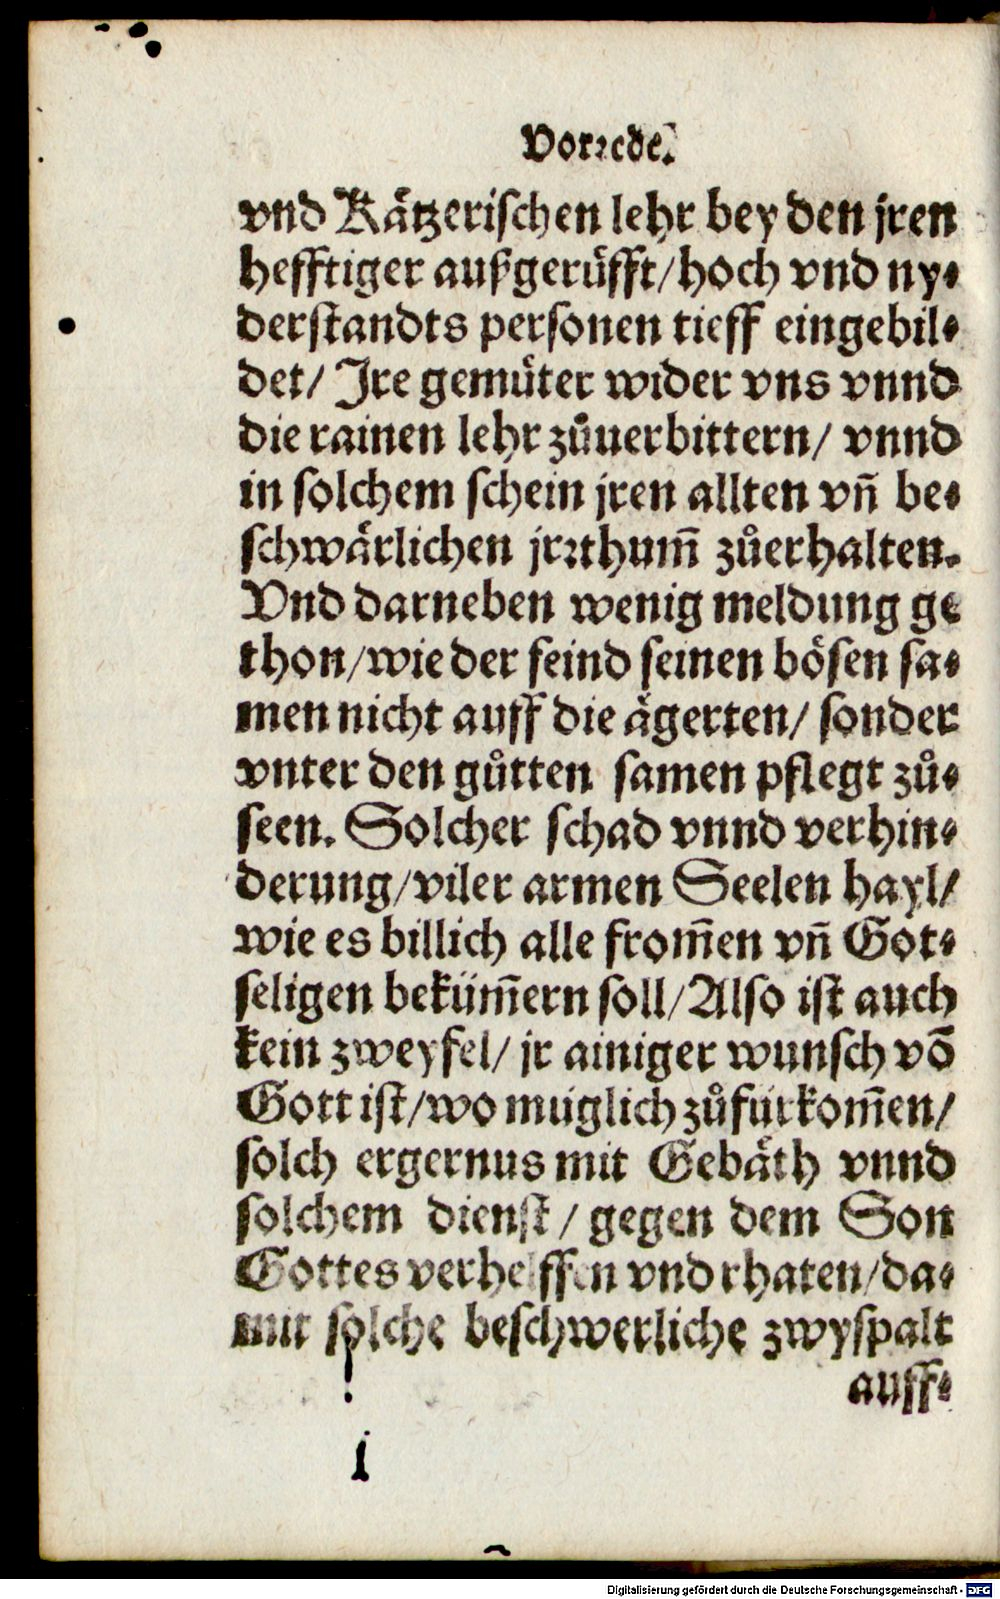 Vorrede.
vnd Kätzerischen lehr bey den jren
hefftiger außgerüfft/hoch vnd ny⸗
derstandts personen tieff eingebil⸗
det/ Jre gemüter wider vns vnnd
die rainen lehr zůuerbittern/ vnnd
in solchem schein jren allten vñ be⸗
schwärlichen jrrthum̃ zůerhalten.
Vnd darneben wenig meldung ge
thon/wie der feind seinen bösen sa⸗
men nicht auff die ägerten/ sonder
vnter den gůtten samen pflegt zů⸗
seen. Solcher schad vnnd verhin⸗
derung/viler armen Seelen hayl/
wie es billich alle from̃en vñ Got⸗
seligen beküm̃ern soll/Also ist auch
kein zweyfel/ jr ainiger wunsch võ
Gott ist/wo müglich zůfürkom̃en/
solch ergernus mit Gebäth vnnd
solchem dienst/ gegen dem Son
Gottes verhelffen vnd rhaten/da⸗
mit solche beschwerliche zwyspalt
auff⸗
Digitalisierung gefördert durch die Deutsche Forschungsgemeinschaft - DFG